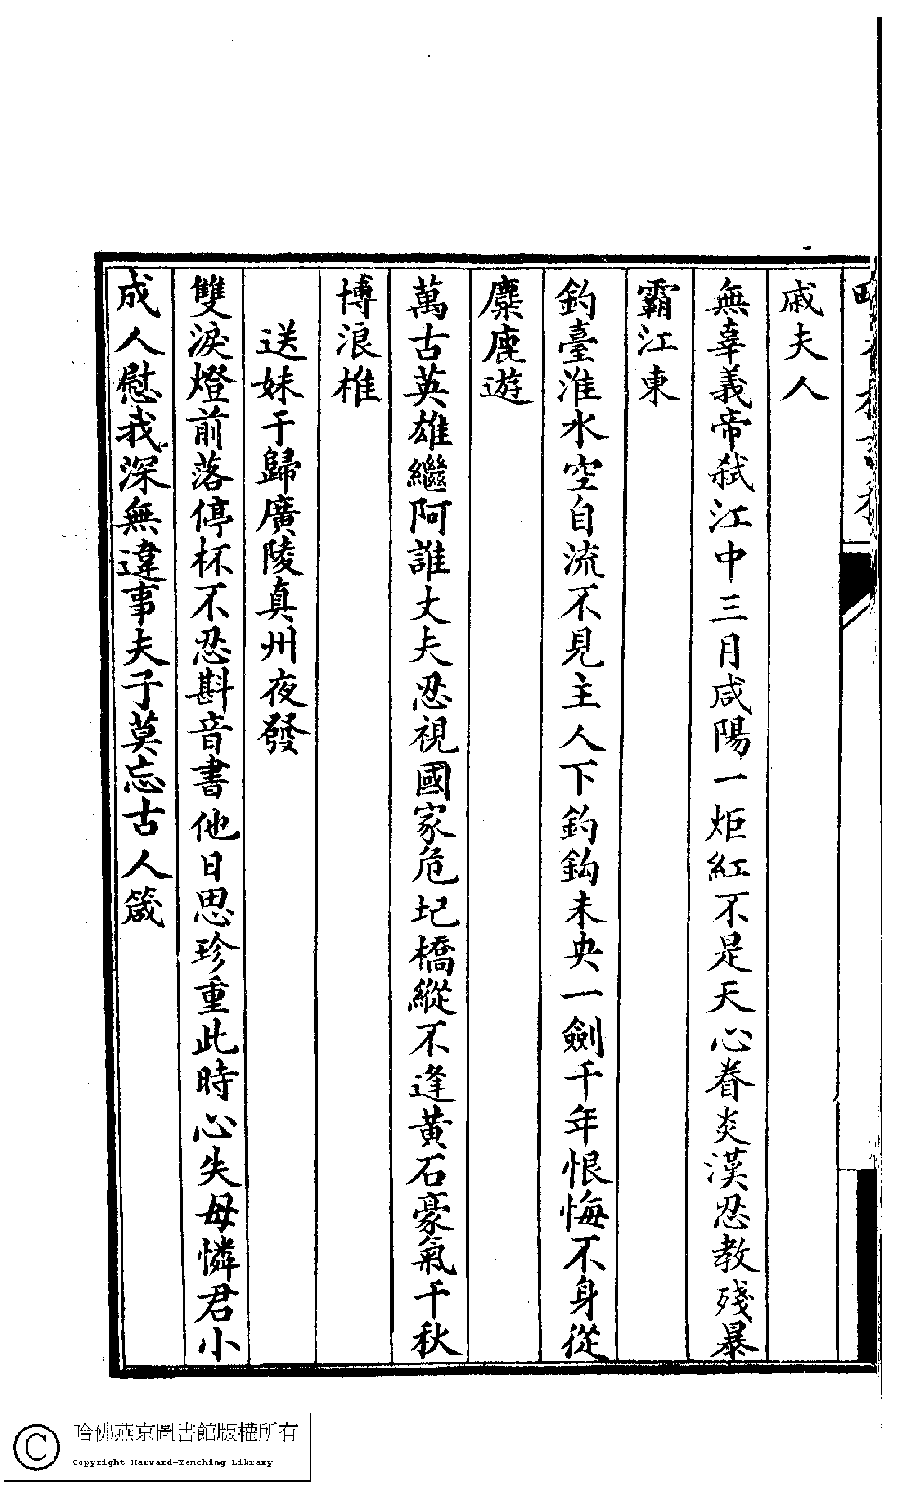 戚夫人
無辜義帝弒江中三月咸陽一炬紅不是天心眷炎漢忍教殘暴
霸江東
釣臺淮水空自流不見主人下釣鈎未央一劍千年恨悔不身從
麋鹿遊
萬古英雄繼阿誰丈夫忍視國家危圯橋縱不逢黃石豪氣千秋
博浪椎
送妹于歸廣陵真州夜發
雙淚燈前落停杯不忍斟音書他日思珍重此時心失母憐君小
成人慰我深無違事夫子莫忘古人箴
哈佛燕京圖書館版權所有
Copyright Harvard-Yenching Library